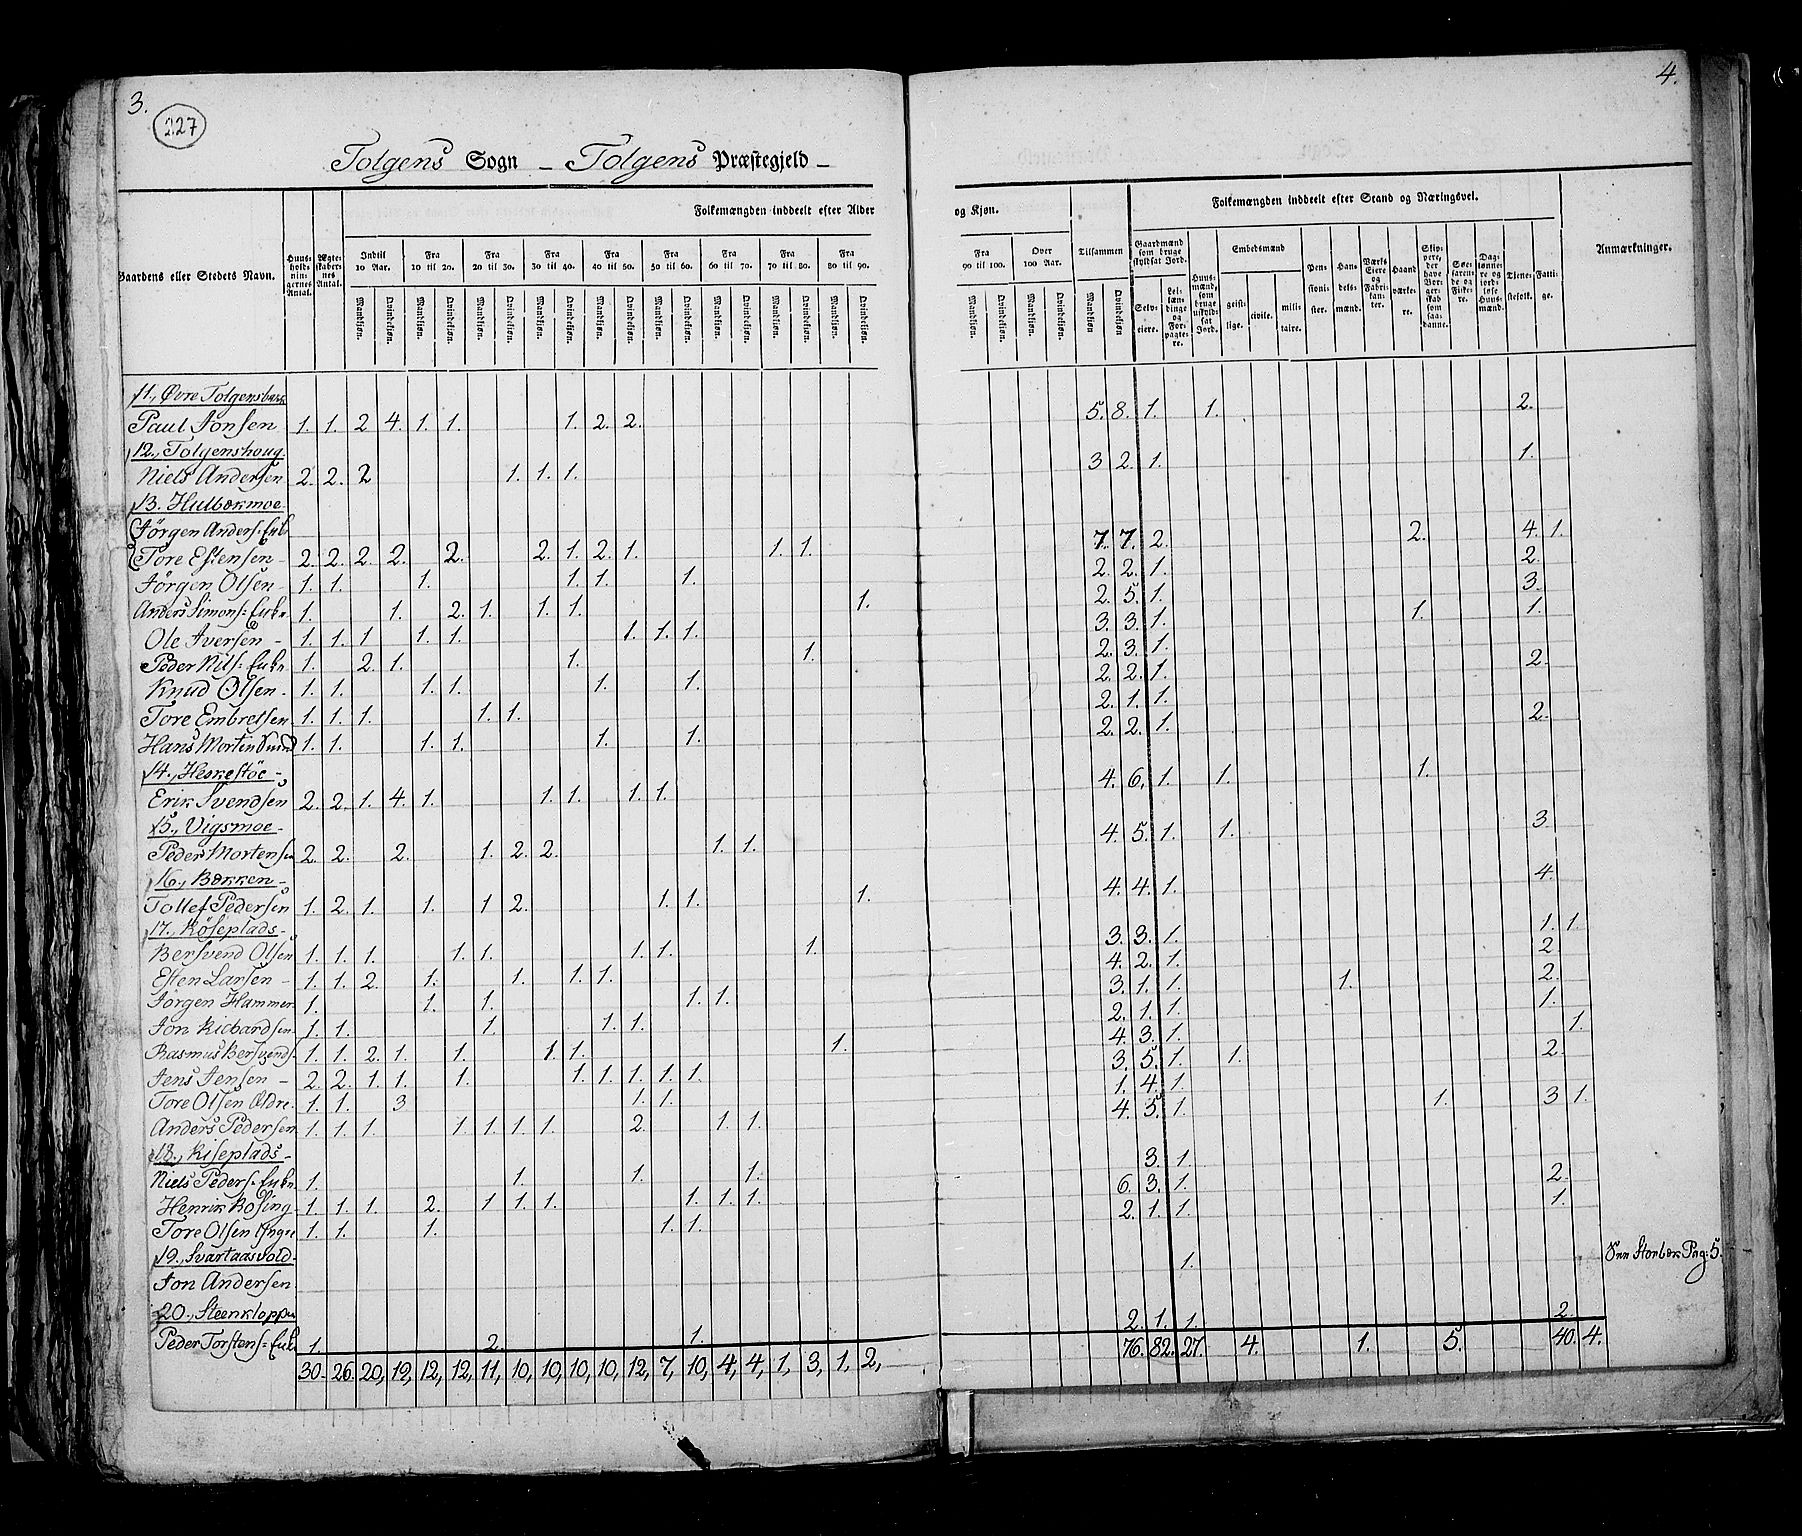 3.
227
4.
Tolgens Sogn – Tolgens Præstegjeld –
Gaardens eller Stedets Navn.
Huusholdningernes Antal.
Ægteskabernes Antal.
Folkemængden inddeelt efter Alder
og Kjøn.
Indtil 10 Aar. Fra 10 til 20. Fra 20 til 30. Fra 30 til 40. Fra 40 til 50. Fra 50 til 60. Fra 60 til 70. Fra 70 til 80. Fra 80 til 90.
Fra 90 til 100. Over 100 Aar. Tilsammen
Mandkjøn. Qvindekjøn.
Folkemængden inddeelt efter Stand og Næringsvei.
Gaardmænd som bruge skyldsat Jord.
Selveiere.
Leilændinge og Forpagtere.
Huusmænd, som bruge uskyldsat Jord.
Embedsmænd
geistlige. civile. militaire.
Pensionister.
Handelsmænd.
Værks Eiere og Fabrikanter.
Haandværkere.
Skippere, der have Borgerskab som saadanne.
Søefarende og Fiskere.
Daglønnere og jordløse Huusmænd.
Tjenestefolk.
Fattige.
Anmærkninger.
11., Øvre Tolgensbak
Paul Jonsen 1. 1. 2 4. 1. 1. 1. 2. 2. 5. 8. 1. 1. 2.
12., Tolgenshoug.
Niels Andersen 2. 2. 2 1. 1. 1. 3 2. 1. 1.
13. Hulbækmoe
Jörgen Anders: Enk
Tore Estensen 2. 2. 2. 2. 2. 2. 1. 2. 1. 1. 1. 7. 7. 2. 2. 4. 1.
Jörgen Olsen 1. 1. 1. 1. 1. 1. 2. 2. 1. 2.
Anders Simons: Enke. 1. 1. 2. 1. 1. 1. 1. 2. 5. 1. 3.
Ole Iversen 1. 1. 1. 1. 1. 1. 1. 1. 3. 3. 1. 1. 1.
Peder Nils: Enke. 1. 2. 1. 1. 1. 2. 3. 1.
Knud Olsen 1. 1. 1. 1. 1. 1. 2. 2. 1. 2.
Tore Embretsen 1. 1. 1. 1. 1. 2. 1. 1.
Hans Morten Svend 1. 1. 1. 1. 1. 1. 2. 2. 1. 2.
14., Heskestöe
Erik Svendsen 2. 2. 1. 4. 1. 1. 1. 1. 1. 4. 6. 1. 1. 1.
15., Vigsmoe
Peder Mortensen 2. 2. 2. 1. 2. 2. 1. 1. 4. 5. 1. 1. 3.
16., Bækken
Tollef Pedersen 1. 2. 1. 1. 1 2. 1. 1. 1. 4. 4. 1. 4.
17., Röseplads
Bersvend Olsen 1. 1. 1. 1. 1. 1. 1. 1. 3. 3. 1. 1. 1.
Esten Larsen 1. 1. 2. 1. 1. 1. 1. 4. 2. 1. 2
Jörgen Hammer. 1. 1. 1. 1. 1. 3. 1. 1. 1. 2.
Jon Richardsen 1. 1. 1. 1. 1. 2. 1. 1. 1.
Rasmus Bersvends. 1. 1. 2. 1. 1. 1. 1. 1. 4. 3. 1. 1.
Jens Jensen 2. 2. 1. 1. 1. 1. 1. 1. 1. 1. 3. 5. 1. 1. 2.
Tore Olsen Ældre. 1. 1. 3 1. 1. 1. 4. 1.
Anders Pedersen 1. 1. 1. 1. 1. 1. 1. 2. 1. 1. 4. 5. 1. 1. 3 1.
18., Riseplads
Niels Peders: Enke 1. 1. 1. 1. 3. 1.
Henrik Rosing 1. 1. 1. 2. 1 1. 1. 1. 1. 1. 6. 3. 1. 2.
Tore Olsen Yngre 1. 1. 1. 1. 1. 2. 1. 1. 1.
19., Svartaasvold
Jon Andersen 1. Storbæk Pag: 5.
20., Steenkloppen
Peder Torstens: Enke 1. 2. 1. 2. 1. 1. 2.
30. 26. 20, 19, 12, 12, 11, 10, 10, 10, 10, 12, 7, 10, 4, 4, 1, 3, 1. 2, 76. 82. 27. 4. 1. 5. 40. 4.